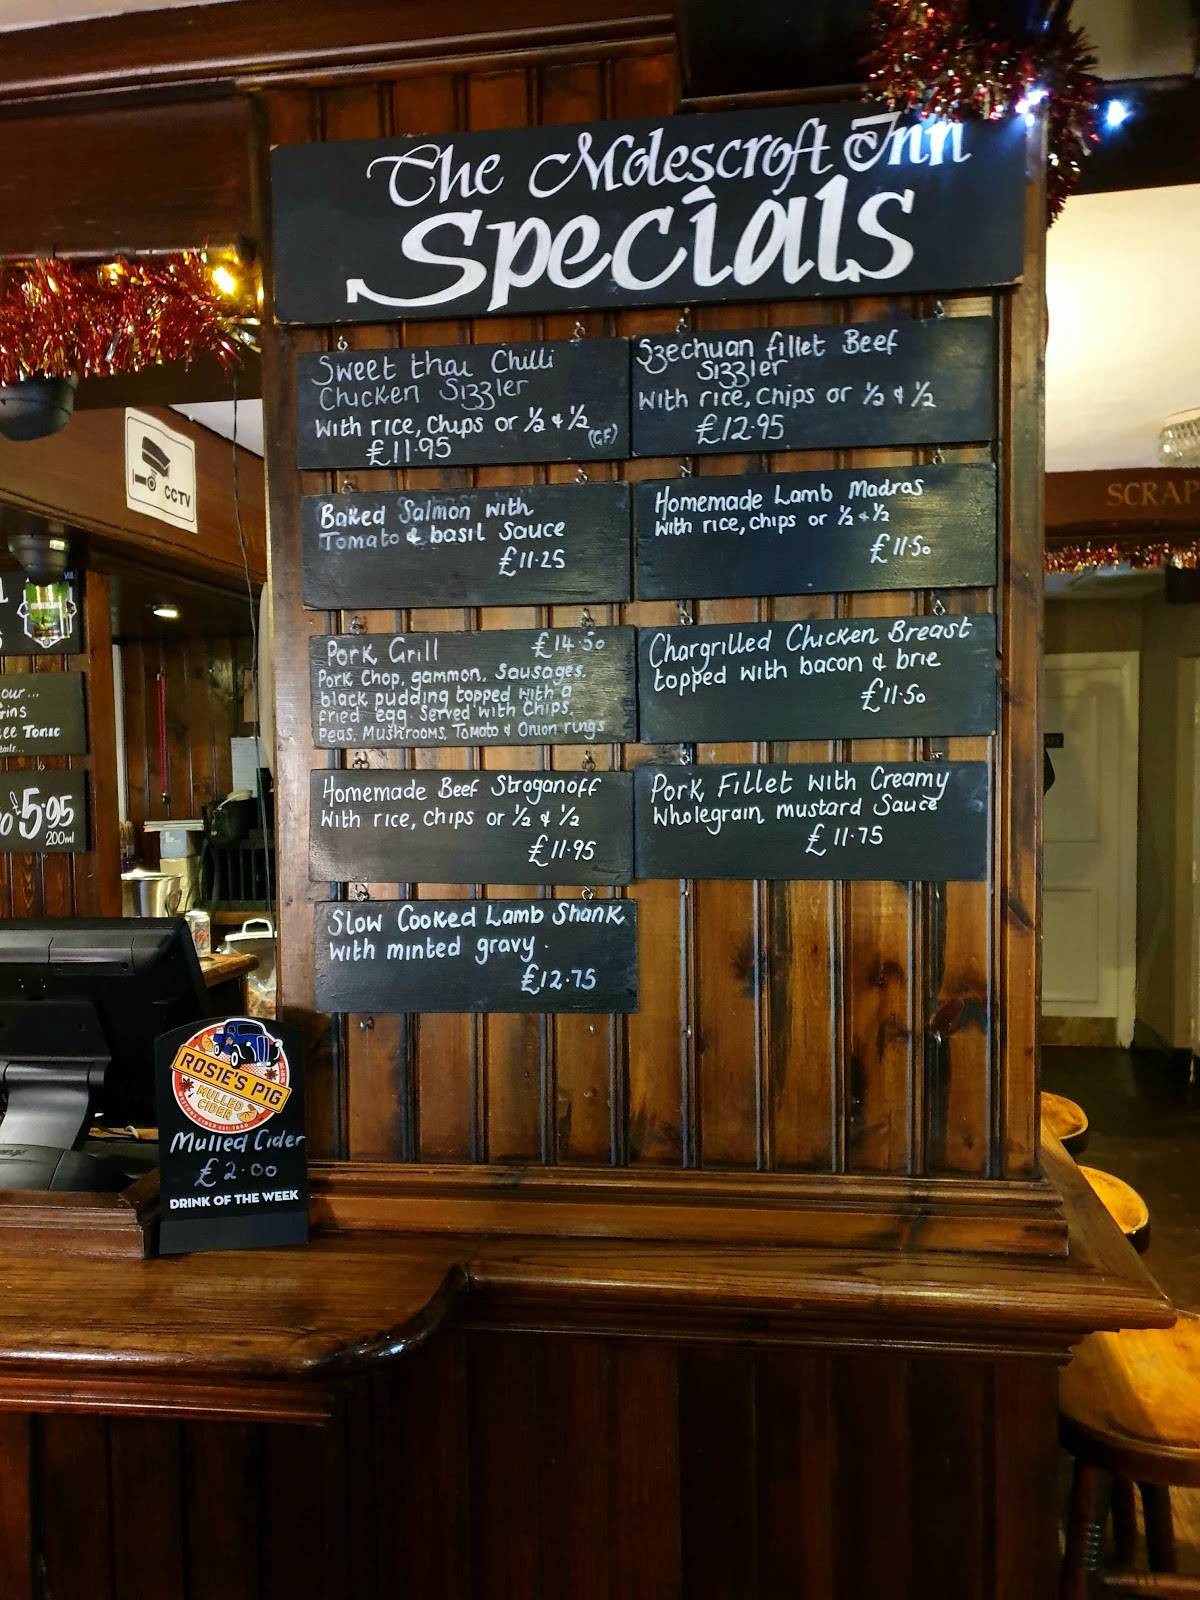 The Molescroft Inn
Specials
Sweet thai Chilli
Chicken Sizzler
with rice, chips or ½ & ½
(GF)
£11.95
Szechuan fillet Beef
Sizzler
with rice, chips or ½ & ½
£12.95
Baked Salmon with
Tomato & basil Sauce
£11.25
Homemade Lamb Madras
with rice, chips or ½ & ½
£11.50
Pork Grill £14.50
Pork Chop, gammon, Sausages,
black pudding topped with a
fried egg. Served with Chips,
Peas, Mushrooms, Tomato & Onion rings
Chargrilled Chicken Breast
topped with bacon & brie
£11.50
Homemade Beef Stroganoff
with rice, chips or ½ & ½
£11.95
Pork Fillet with Creamy
Wholegrain mustard Sauce
£11.75
Slow Cooked Lamb Shank
with minted gravy.
£12.75
CCTV
SCRAP
our...
Gins
ee Tonic
£5.95
200ml
ROSIE'S PIG
MULLED
CIDER
Mulled Cider
£2.00
DRINK OF THE WEEK